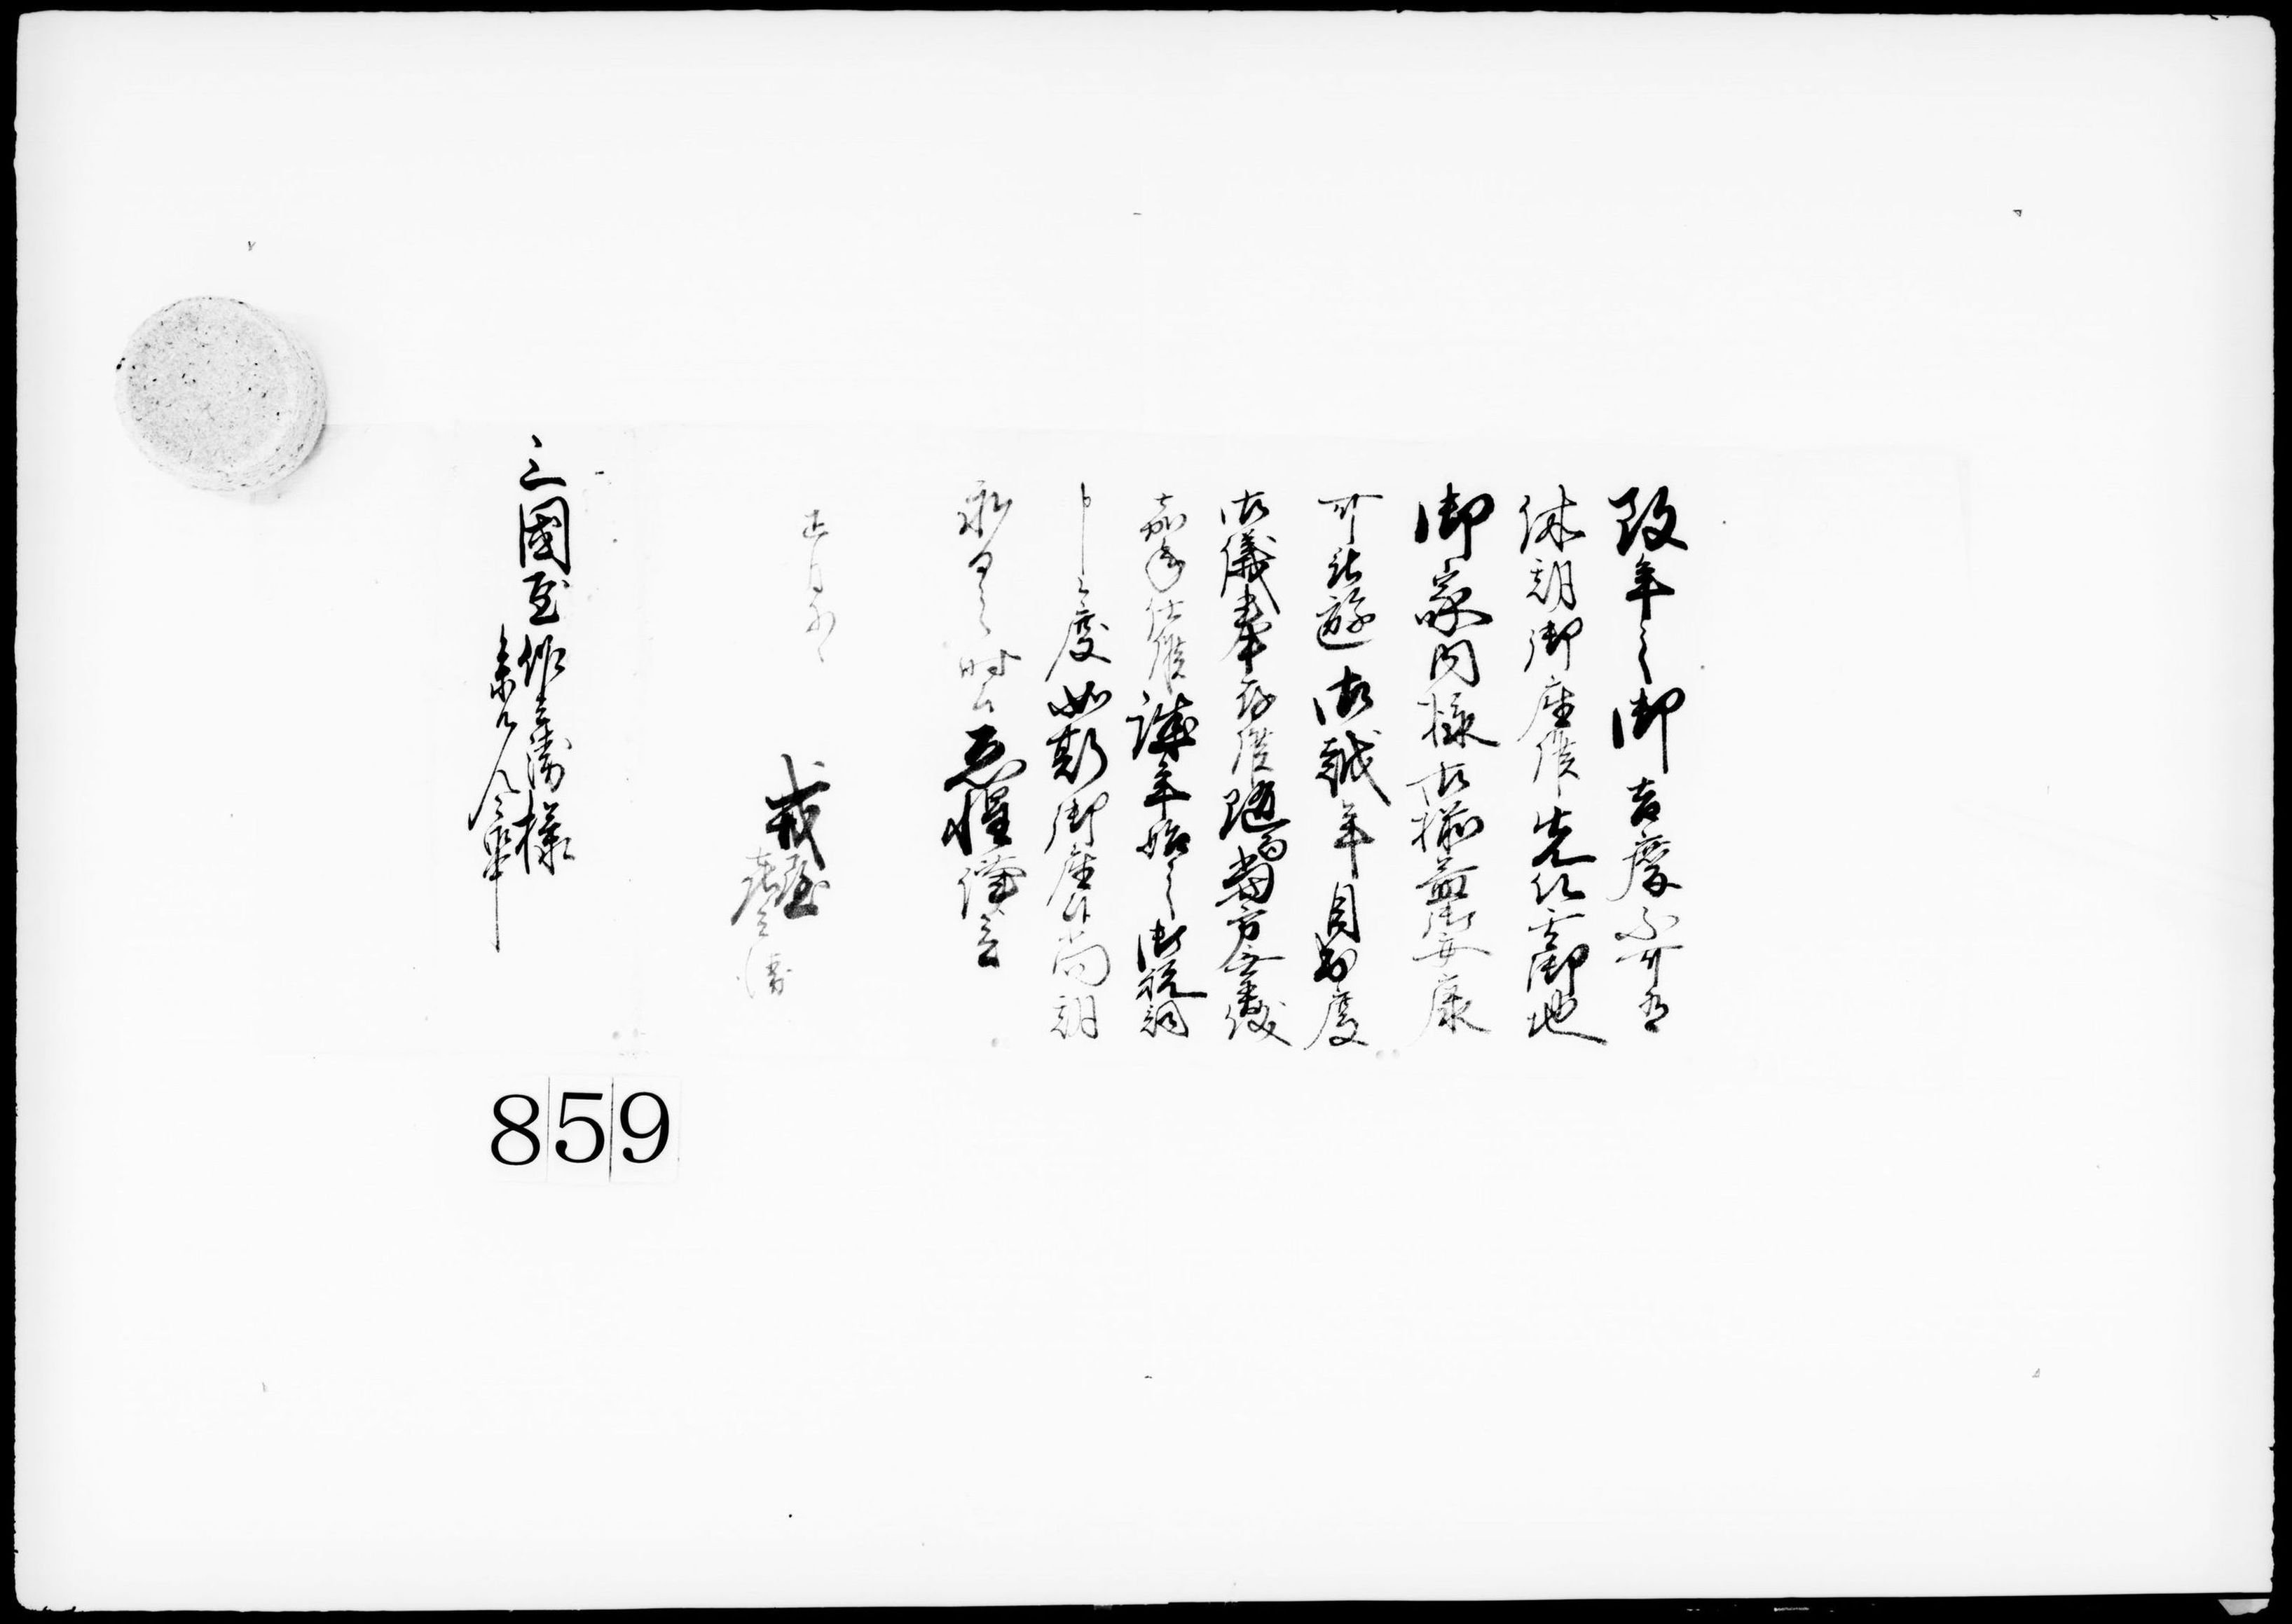 改年之御吉慶不可有
休期御座候先以其御地
御家内様御揃益御安康
可被遊御越年目出度
御儀奉存候随而当方無異儀
加年仕候誠年始之御祝詞
申上度如斯御座候尚期
永日之時候恐惶謹言
正月
戎屋
三國屋
様
859